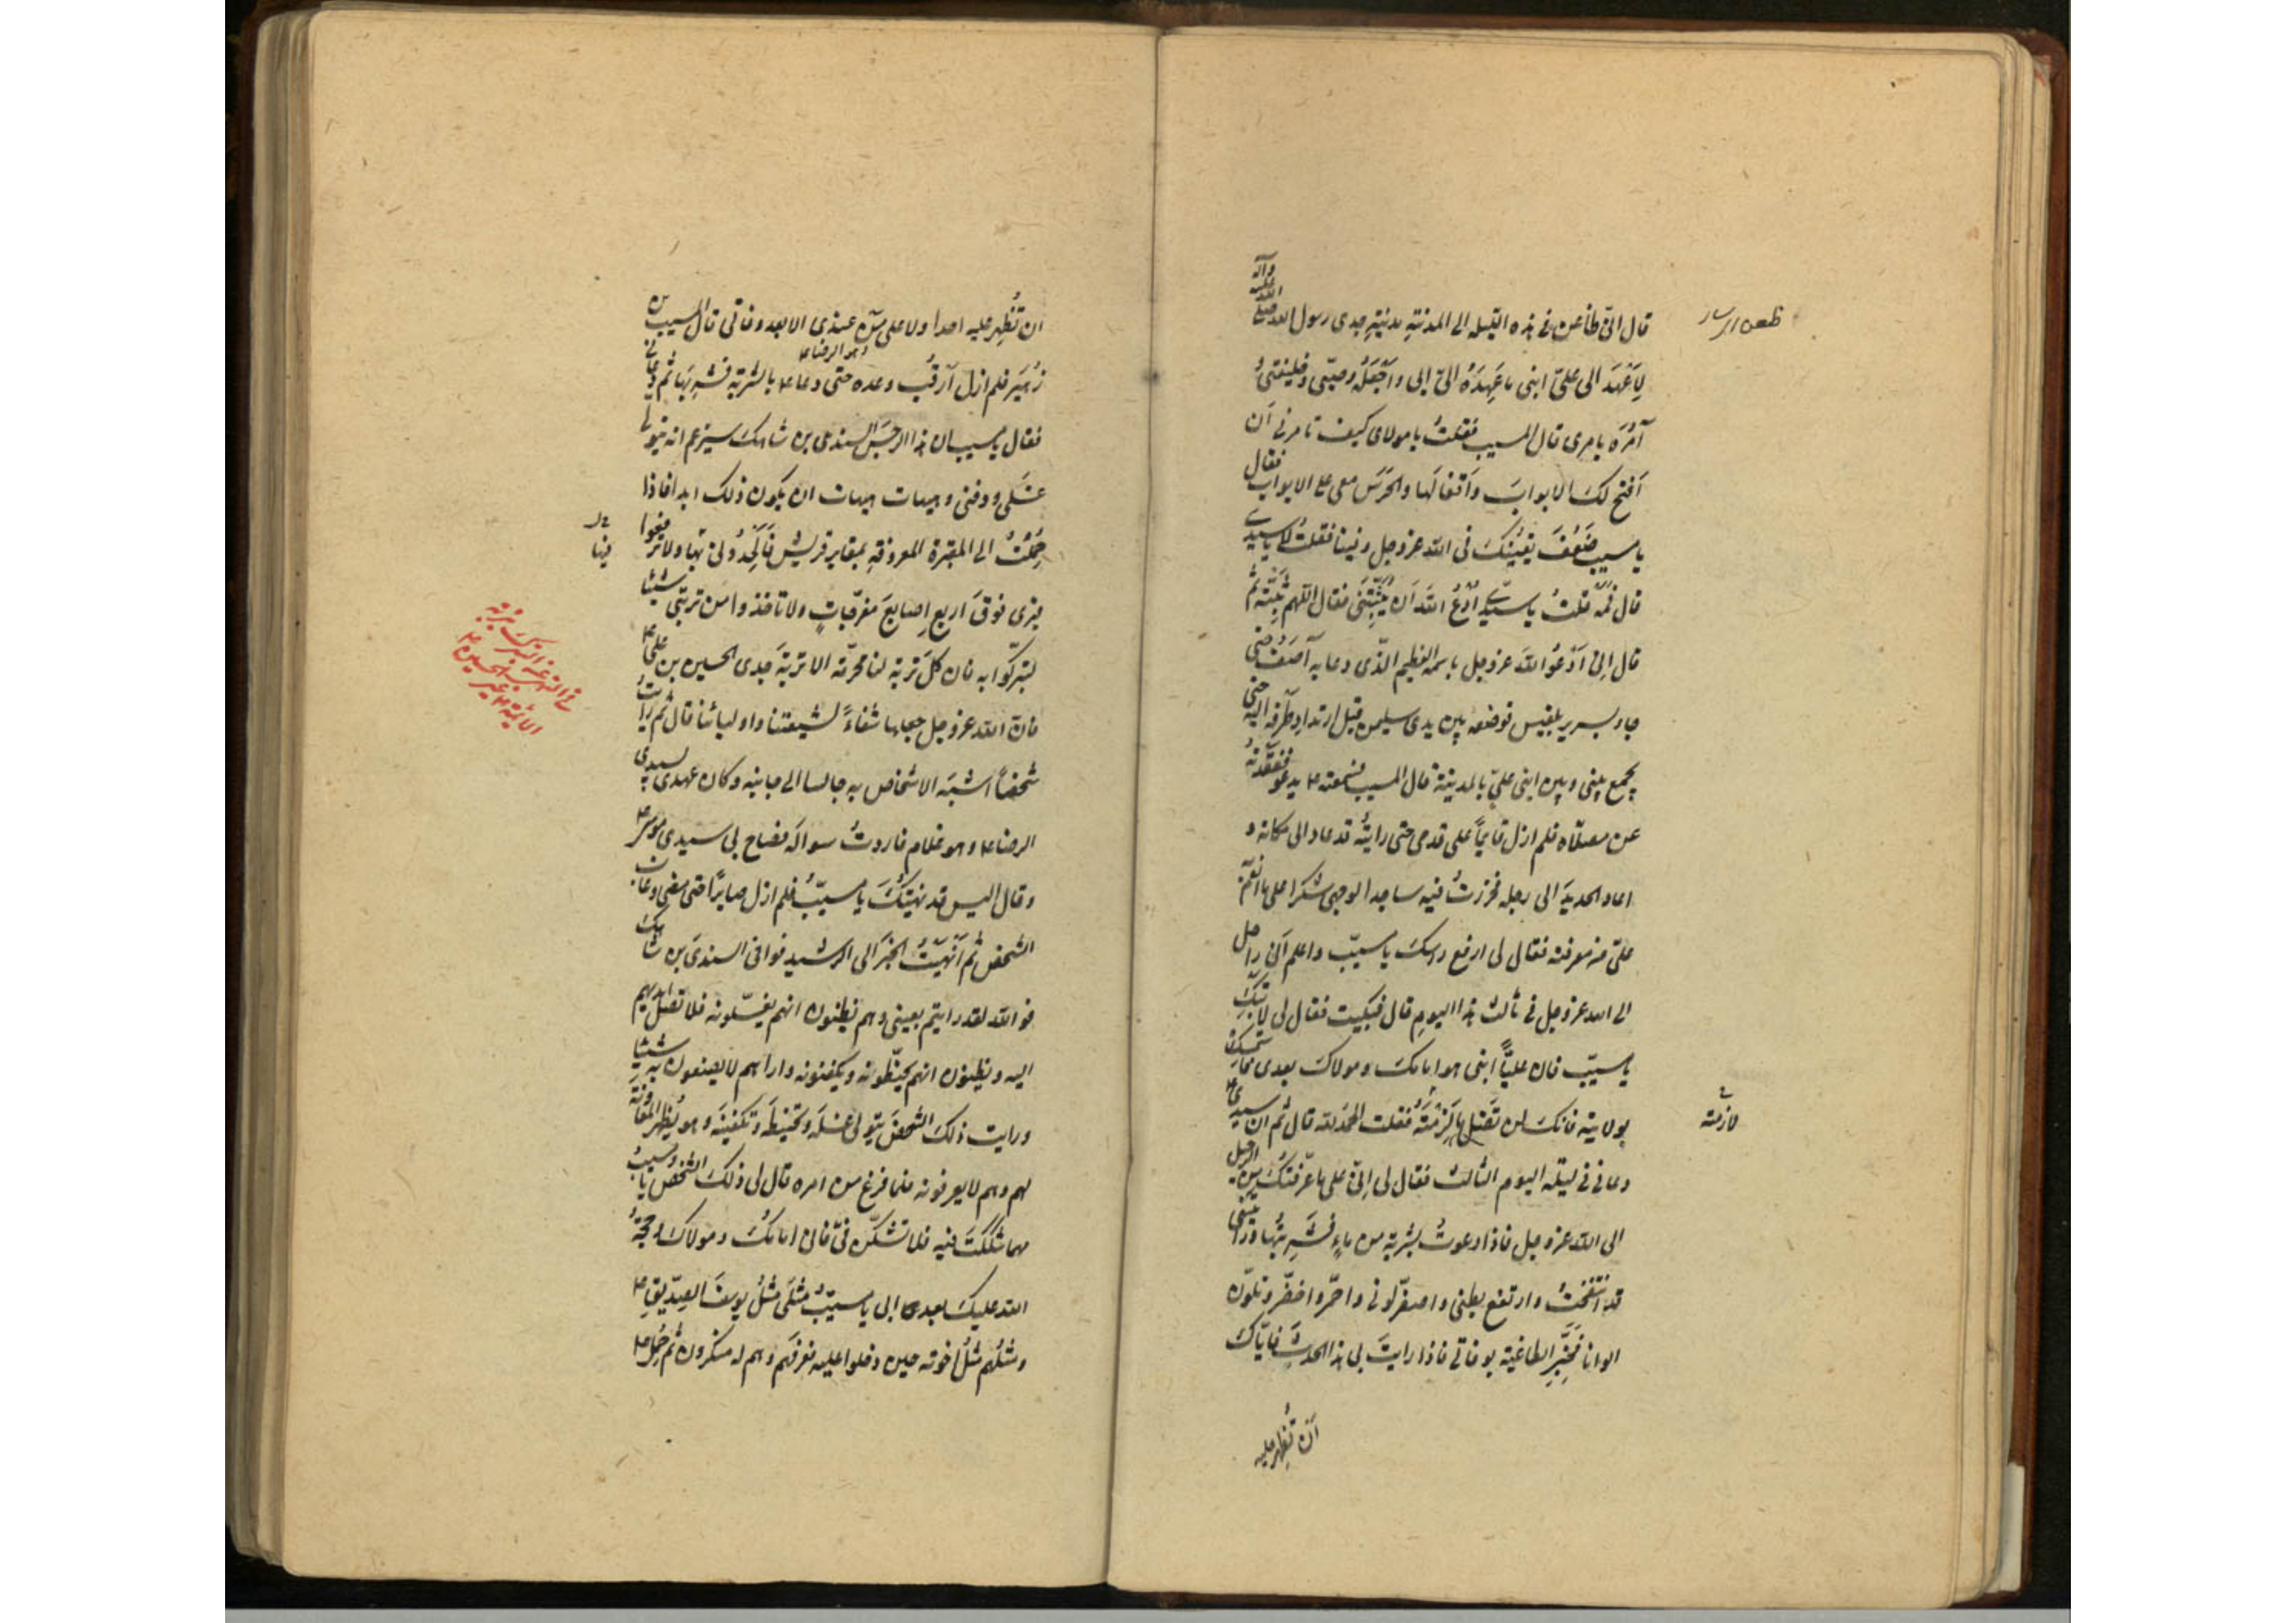 قال انّى ظاعن فى هذه الليلة الى المدينةِ مدينةِ جدى رسول الله صلى الله عليه وآله
لِاَعْهَدَ الى علىّ ابنى ما عَهِدَهُ الىّ ابى وَاَجْعَلَهُ وصيّى وخليفتى و
آمُرَه بامرى قال المسيب فقلتُ يا مولاى كيف تامرنى اَن
اَفتح لكَ الابوابَ واَقفالَها والحَرَس معى على الابواب فقال
يا مسيب ضَعُفَ يقينُكَ فى الله عز وجل وفينا فقلتُ لا يا سيدى
قال فَمَهْ قلتُ يا سيدى اُدْعُ اللهَ اَن يُثَبِّتَنى فقال اللهم ثَبِّتْه ثم
قال اِنى اَدْعُو اللهَ عز وجل باسمه العظيم الذى دعا به آصَف حتى
جاء بسرير بلقيس فوضعه بين يدى سليمن قبل ارتدادِ طَرْفه اليه حتى
يجمع بينى وبين ابنى علىّ بالمدينة قال المسيب فسمعته ع يدعو ففَقَدْتُهُ
عن مصلّاه فلم ازل قايماً على قدمى حتى رايتُه قد عاد الى مكانه و
اعاد الحديدَ الى رجله فخررتُ فيه ساجدا لوجهى شكرا على ما انعَمَ
علىّ من معرفته فقال لى ارفع راسكَ يا مسيّب واعلم اَنى راحل
الى الله عز وجل فى ثالث هذا اليوم قال فبكيت فقال لى لا تبكِ
يا مسيّب فان عليّاً ابنى هو امامكَ ومولاك بعدى فتمسك
بولايته فانكَ لن تَضِل ما لَزِمْتَهُ فقلت الحمد لله قال ثم ان سيدى ع
دعانى فى ليلة اليوم الثالث فقال لى اِنىّ على ما عَرَّفتُكَ من الرحيل
الى الله عز وجل فاذا دعوتُ بشربة من ماءٍ فشَرِبتُها ورايتنى
قد انتفختُ وارتفع بطنى واصفَرّ لونى واحمَّر واخضَّر وتلوّن
الوانا فَخَبِّرِ الطاغية بوفاتى فاذا رايتَ بى هذا الحدثَ فايّاكَ
اَن تُظهِر عليه
لازمته
ان تُظْهِر عليه احدا ولا على مَن عندى الا بعد وفاتى قال المسيب بن
وهو الرضا ع
زُهَيَر فلم ازل اَرقُب وعده حتى دعا ع بالشربة فشَرِبَها ثم دعانى
فقال يا مسيب ان هذا الرجسَ السندى بن شاهك سيزعم انه يتولى
غسلى ودفنى وهيهات هيهات ان يكون ذلك ابدا فاذا
حُمِلْتُ الى المقبرة المعروفةِ بمقابر قريش فَاَلْحِدُونى بها ولا ترفعوا
قبرى فوقَ اربع اصابعَ مفرّجاتٍ ولا تاخذوا من تربتى شيئا
لتبرّكوا به فان كلَ تربةٍ لنا محرّمة الا تربةَ جدى الحسين بن على ع
فانّ الله عز وجل جعلها شفاءً لشيعتنا واوليائنا قال ثم رايتُ
شخصاً اَشبَه الاشخاص به جالسا الى جانبه وكان عهدى بسيدى
الرضا ع وهو غلام فاردتُ سواله فصاح بى سيدى موسى ع
وقال اليس قد نهيتُكَ يا مسيّبُ فلم ازل صابرًا حتى مضى وغاب
الشخص ثم اَنْهيْتُ الخبرَ الى الرشيد فوافى السندىّ بن شاهك
فو الله لقد رايتهم بعينى وهم يظنون انهم يغسّلونه فلا تصل ايديهم
اليه ويظنون انهم يحنّطونه ويكفنونه واراهم لا يصنعون به شيئا
ورايت ذلكَ الشخصَ يتولى غسلَه وتحنيطَه وتكفينَه وهو يُظهر المعاونة
لهم وهم لا يعرفونه فلما فرغ من امره قال لى ذلكَ الشخص يا مسيبُ
مهما شككتَ فيه فلا تشكّن فىّ فانى امامكَ ومولاك وحجةُ
الله عليكَ بعد ابى يا مسيبُ مثلى مثلُ يوسفَ الصِدّيقِ ع
ومثلُهم مثلُ اخوته حين دخلوا عليه فعرفَهم وهم له منكرون ثم حُمِل ع